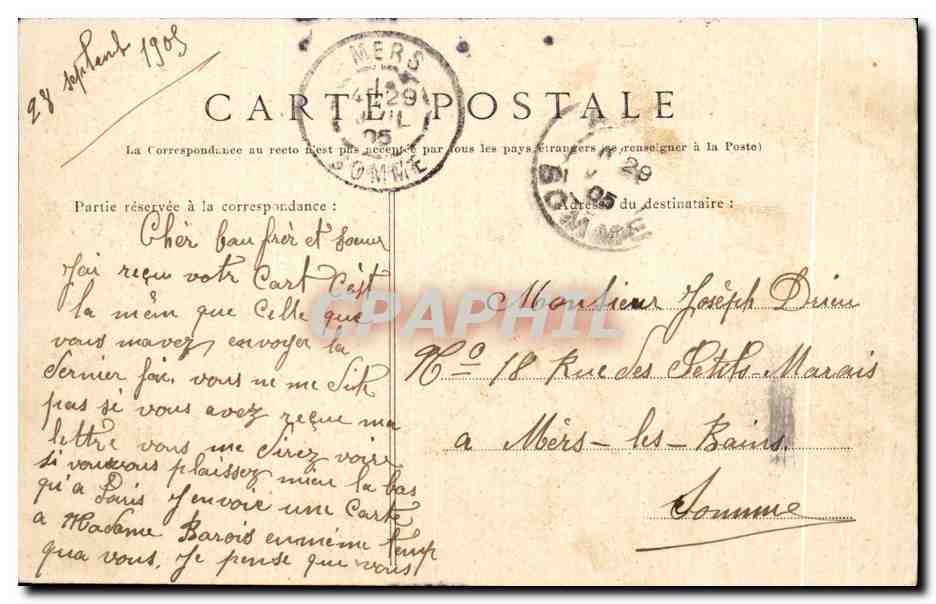 28 septemb 1905
MERS
4 29
05
SOMME
CARTE POSTALE
La Correspondance au recto n'est pas acceptée par tous les pays étrangers (se renseigner à la Poste)
29
05
SOMME
Partie réservée à la correspondance :
Chèr bau frèr et soeur
J'ai reçu votr Cart C'est
la mêm que Celle que
vous mavez envoyer la
dernier foi, vous ne me dit
pas si vous avez reçue ma
lettre vous me direz voire
si vous vous plaissez mieu la bas
qu'a Paris J'envoie une Carte
a Madame Barois en même temp
qua vous, Je pense que vous
Adresse du destinataire :
Monsieur Josèph Drieu
No 18 Rue des Petits-Marais
a Mèrs-les-Bains
Somme
CPAPHIL